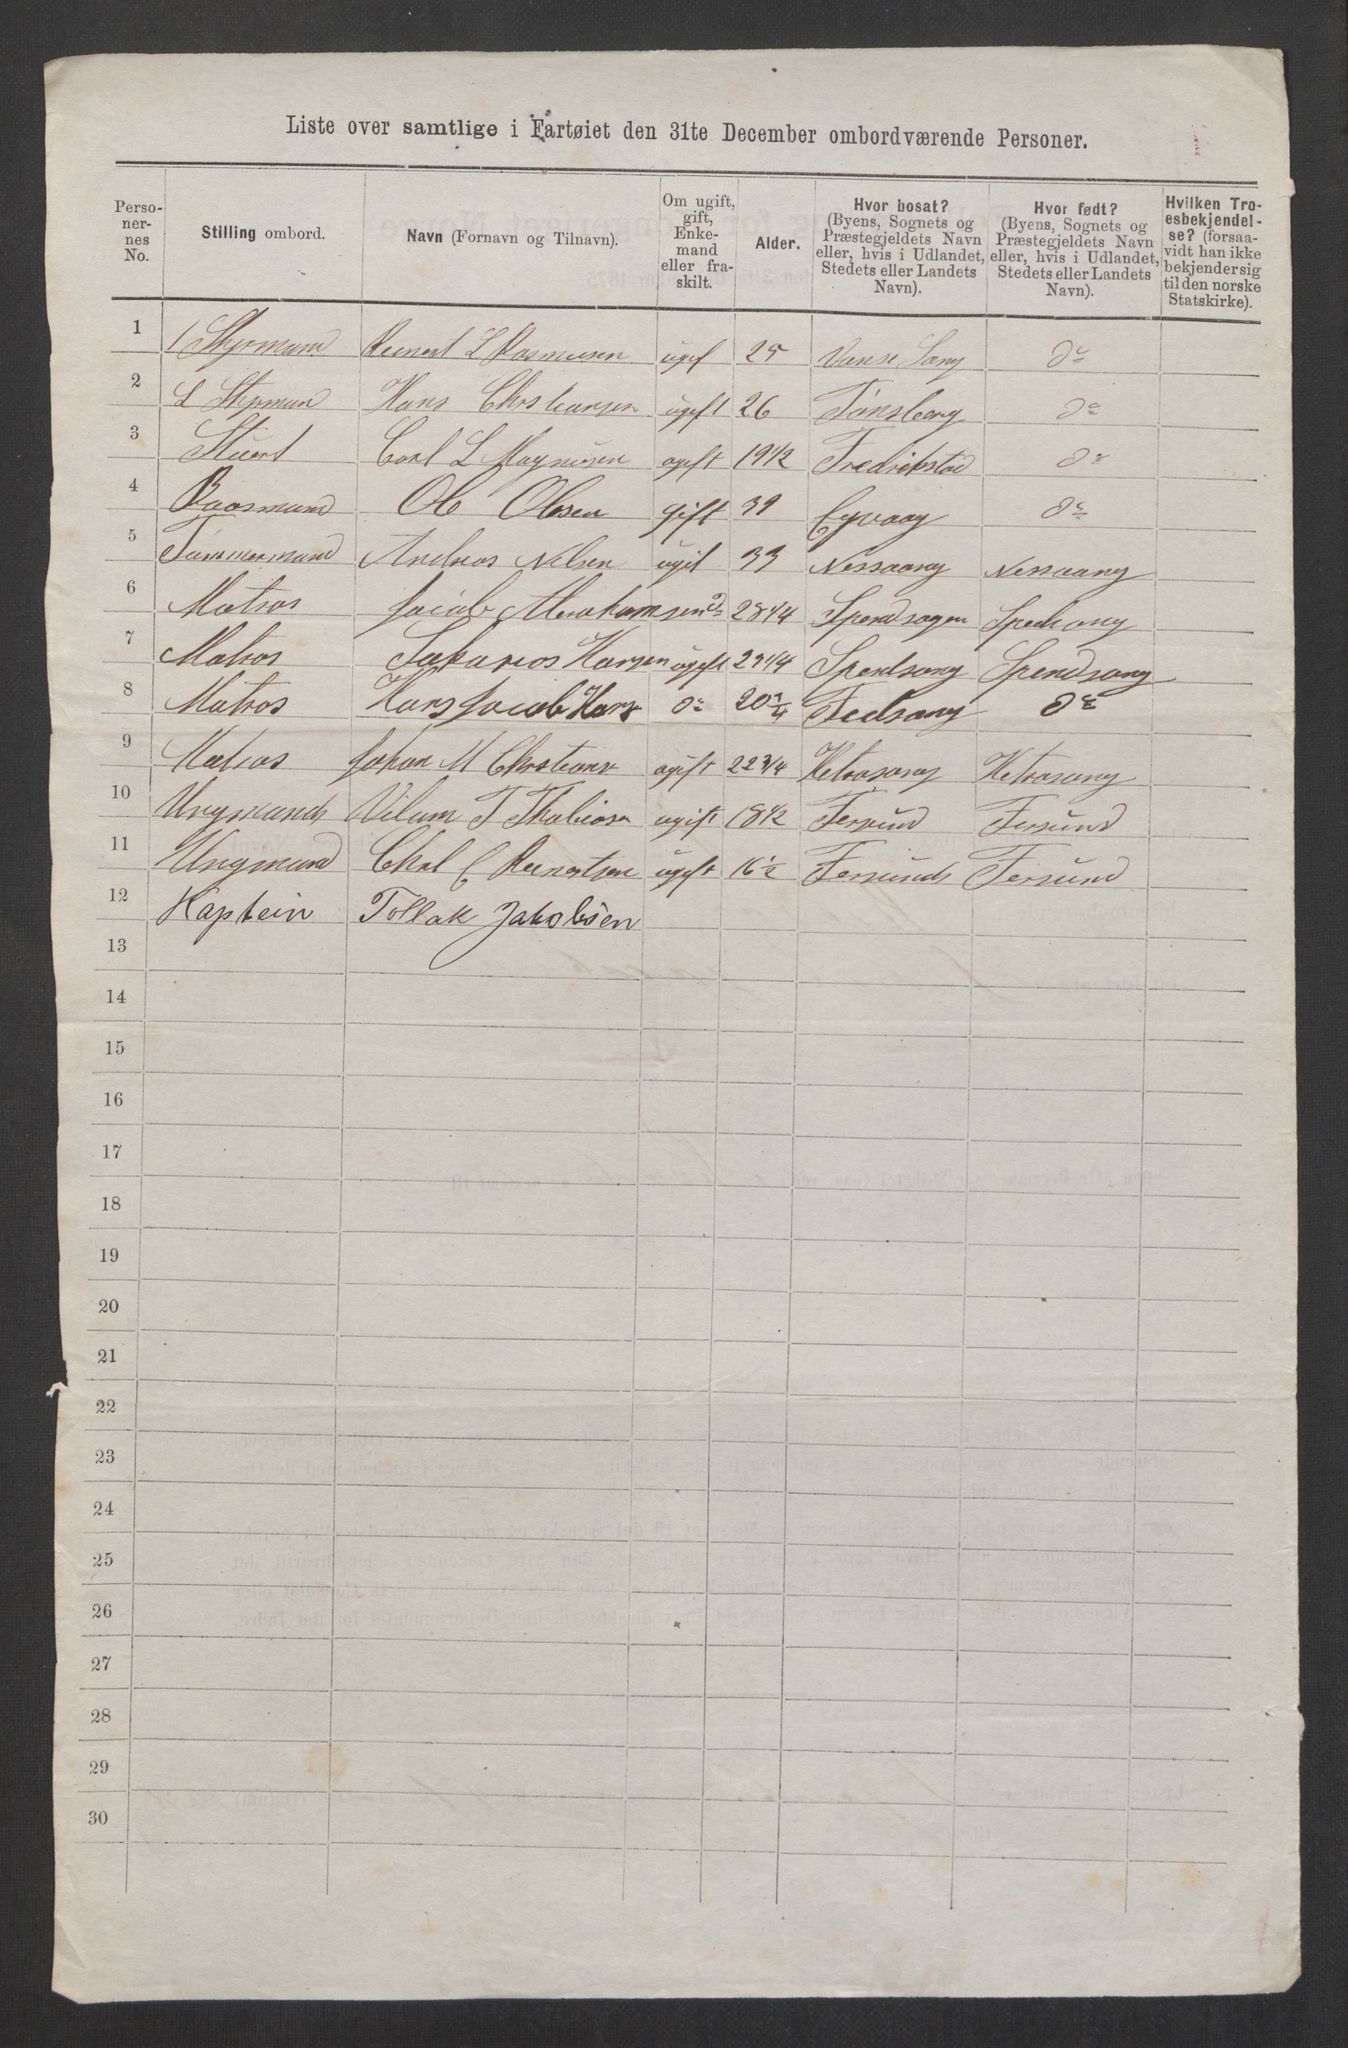 Liste over samtlige i Fartøiet den 31te December ombordværende Personer.
Perso-
ner-
nes
No.
Stilling ombord.
Navn (Fornavn og Tilnavn).
Om ugift,
gift,
Enke-
mand
eller fra-
skilt.
Alder.
Hvor bosat?
(Byens, Sognets og
Præstegjeldets Navn
eller, hvis i Udlandet,
Stedets eller Landets
Navn).
Hvor født?
(Byens, Sognets og
Præstegjeldets Navn
eller, hvis i Udlandet,
Stedets eller Landets
Navn).
Hvilken Tro-
esbekjendel-
se? (forsaa-
vidt han ikke
bekjender sig
til den norske
Statskirke).
1 1 Styrmand Reinert L Rasmusen ugif 25 Vanse Sang do
2 2 Styrman Hans Christiansen ugift 26 Tønsberg do
3 Stuert Carl L Magnusen ugift 19 1/2 Fredrikstad do
4 Baasmand Ole Olsen gift 39 do
5 Tømmermand Andreas Nilsen ugif 33 Nessaang Nessaang
6 Matros Jacob Abrahamsen do 28 1/4
7 Matros Sakarios Hansen ugeft 29 1/4 Spendsong Spendsong
8 Matros Hans Jacob Hans do 20 1/4 do
9 Matros Johan M Chrstians ugift 22 3/4 Hetrasang Hetrasang
10 Ungmand Vilam T ugift 18 1/2 Fersund Fersund
11 Ungmand Chal C Reinertsen ugeft 16 1/2 Fersund Fersund
12 Kaptein Tollak Jakobsen
13
14
15
16
17
18
19
20
21
22
23
24
25
26
27
28
29
30